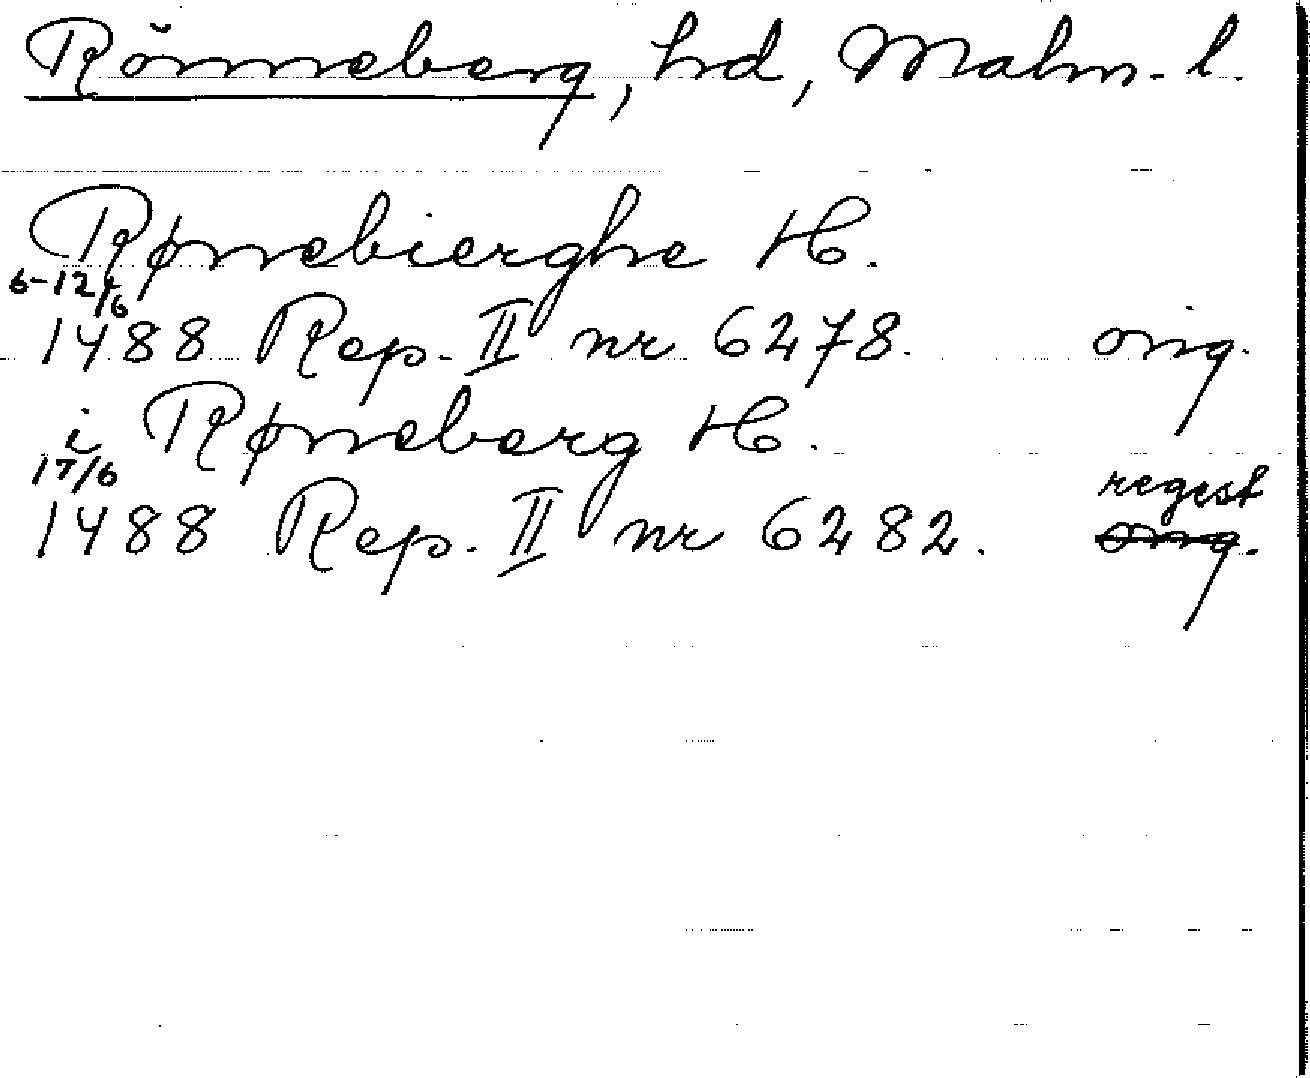 Rönneberg, hd, Malm. l.
Rønnebierghe H.
6-12/6
1488 Rep. II nr 6278. orig.
i Rønneberg H.
17/6 regest
1488 Rep. II nr 6282. orig.